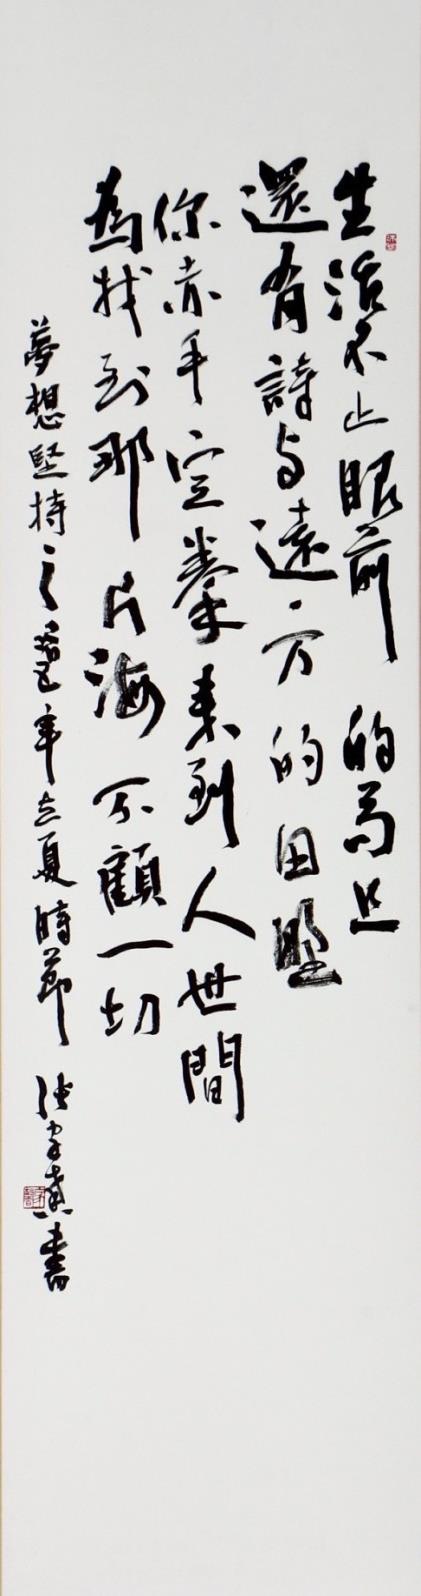 生活不止眼前的苟且
還有詩与遠方的田野
你赤手空拳来到人世間
為找到那片海不顧一切
夢想堅持之年立夏時節 張書